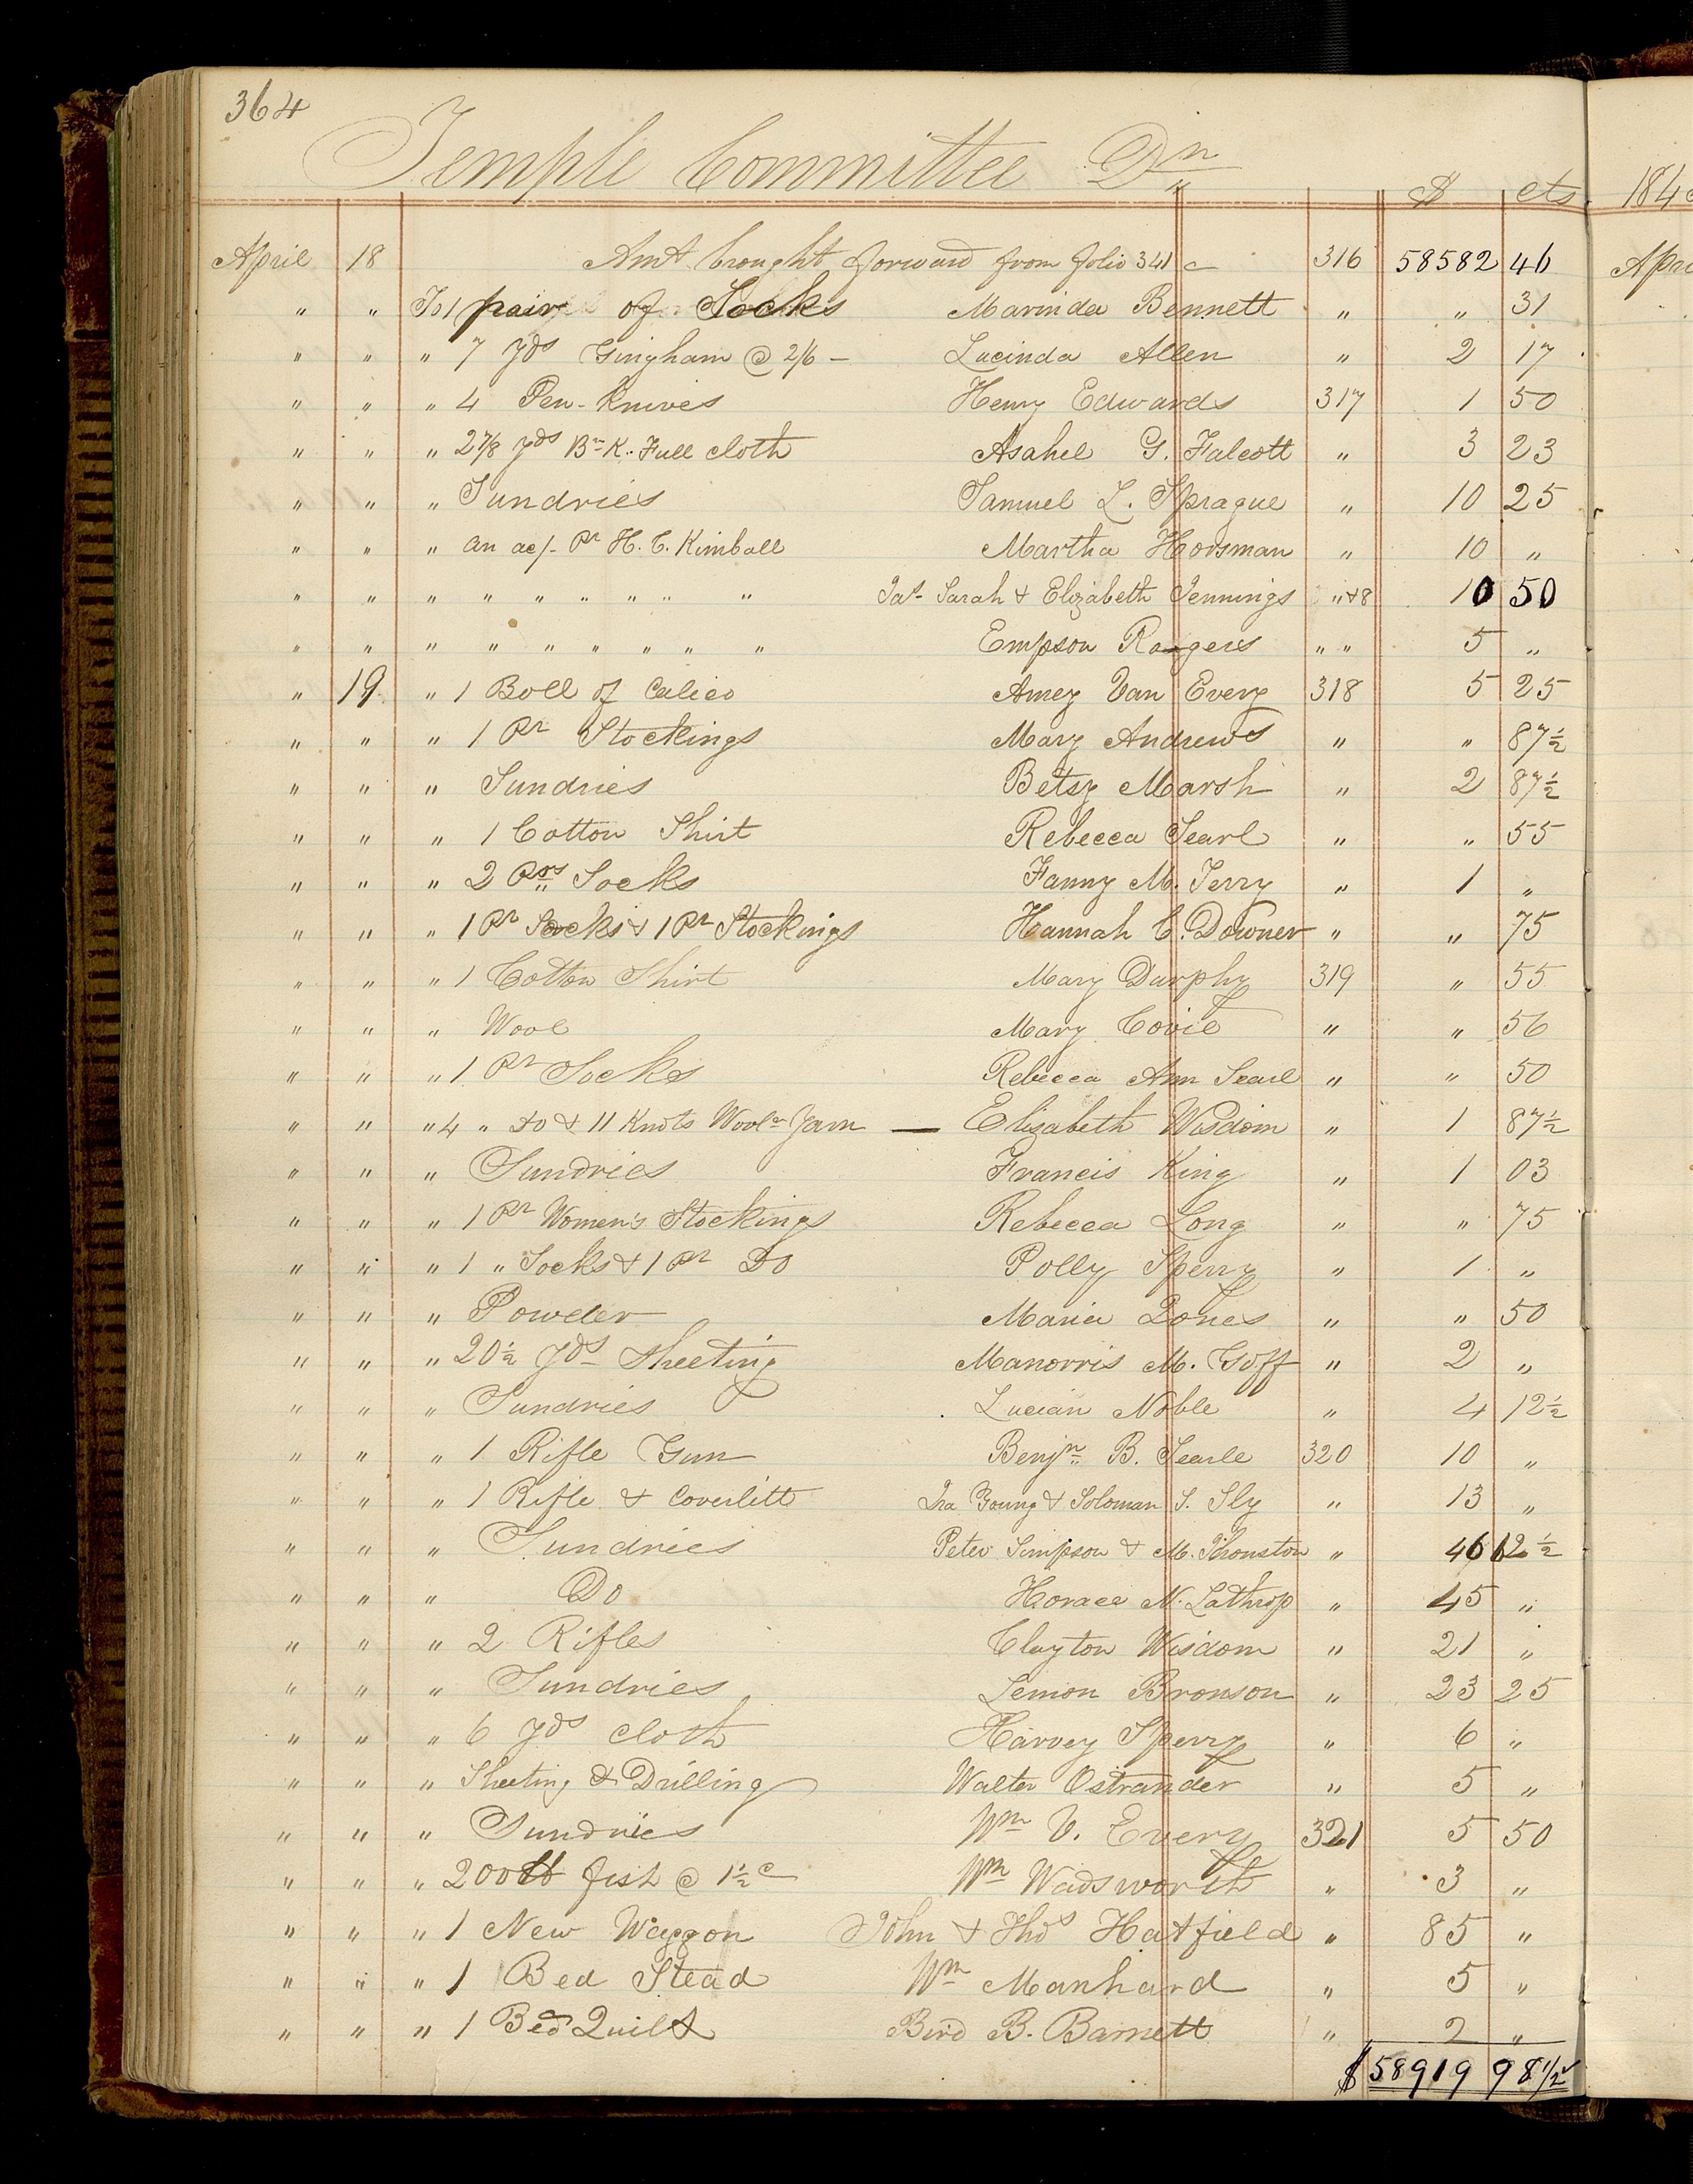 364
Temple Committee Dr
$ cts 184
April 18 Amt brought forward from folio 341 316 58582 46 Apri
" " To 1 pair of Socks Marinda Bennett " " 31
" " " 7 Yds Gingham @ 2/6 — Lucinda Allen " 2 17
" " " 4 Pen-Knives Henry Edwards 317 1 50
" " " 2 7/8 yds Bn K. Full cloth Asahel G. Talcott " 3 23
" " " Sundries Samuel L. Sprague " 10 25
" " " an ac/- Pr H. C. Kimball Martha Horsman " 10 "
" " " " " " " " " Jas Sarah & Elizabeth Jennings " &8 10 50
" " " " " " " " " Empson Rogers " " 5 "
" 19 " 1 Boll of Calico Amey Van Every 318 5 25
" " " 1 Pr Stockings Mary Andrews " " 87½
" " " Sundries Betsy Marsh " 2 87½
" " " 1 Cotton Shirt Rebecca Searl " " 55
" " " 2 Prs Socks Fanny M. Terry " 1 "
" " " 1 Pr Socks & 1 Pr Stockings Hannah C. Downer " " 75
" " " 1 Cotton Shirt Mary Durphy 319 " 55
" " " Wool Mary Covie " " 56
" " " 1 Pr Socks Rebecca Ann Searl " " 50
" " " 4 " do & 11 Knots Wooln Yarn — Elisabeth Wisdom " 1 87½
" " " Sundries Francis King " 1 03
" " " 1 Pr Women's Stockings Rebecca Long " " 75
" " " 1 " Socks & 1 Pr Do Polly Sperry " 1 "
" " " Powder Maria Jones " " 50
" " " 20½ Yds Sheeting Manorris M. Goff " 2 "
" " " Sundries Lucian Noble " 4 12½
" " " 1 Rifle Gun Benjn B. Searle 320 10 "
" " " 1 Rifle & Coverlitt Ira Young & Soloman S. Sly " 13 "
" " " Sundries Peter Simpson & M. Thonston " 46 12½
" " " Do Horace N. Lathrop " 45 "
" " " 2 Rifles Clayton Wisdom " 21 "
" " " Sundries Lemon Bronson " 23 25
" " " 6 Yds Cloth Harvey Sperry " 6 "
" " " Sheeting & Drilling Walter Ostrander " 5 "
" " " Sundries Wm V. Every 321 5 50
" " " 200 lb fish @ 1½c Wm Wadsworth " 3 "
" " " 1 New Waggon John & Thos Hatfield " 85 "
" " " 1 Bed Stead Wm Manhard " 5 "
" " " 1 Bed Quilt Bird B. Barnett " 2 "
$58919 98½